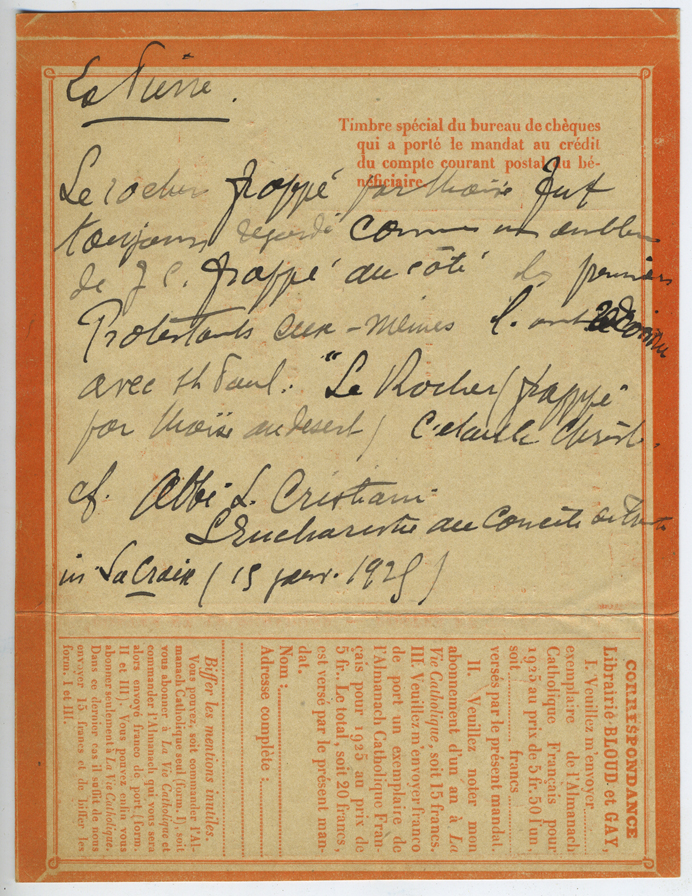 La Pierre.
Timbre spécial du bureau de chèques
qui a porté le mandat au crédit
du compte courant postal du bé-
néficiaire
Le rocher frappé par Moïse fut
toujours regardé comme un emblème
de J C. frappé au côté les premiers
Protestants eux-mêmes l'ont reconnu
avec St Paul: "Le Rocher (frappé
par Moïse au desert) C'etait le Christ.
cf. Abbé L. Cristiani
L'Eucharistie au Concile de Trente
in La Croix (15 janv. 1925)
CORRESPONDANCE
Librairie BLOUD et GAY,
I. Veuillez m'envoyer
exemplaire de l'Almanach
Catholique Français pour
1925 au prix de 5 fr. 50 l'un,
soit francs
versés par le présent mandat.
II. Veuillez noter mon
abonnement d'un an à La
Vie Catholique, soit 15 francs.
III. Veuillez m'envoyer franco
de port un exemplaire de
l'Almanach Catholique Fran-
çais pour 1925 au prix de
5 fr. Le total, soit 20 francs,
est versé par le présent man-
dat.
Nom :
Adresse complète :
Biffer les mentions inutiles.
Vous pouvez, soit commander l'Al-
manach Catholique seul (form. I), soit
vous abonner à La Vie Catholique et
commander l'Almanach qui vous sera
alors envoyé franco de port (form.
II et III). Vous pouvez enfin vous
abonner seulement à La Vie Catholique.
Dans ce dernier cas il suffit de nous
envoyer 15 francs et de Biffer les
form. I et III.